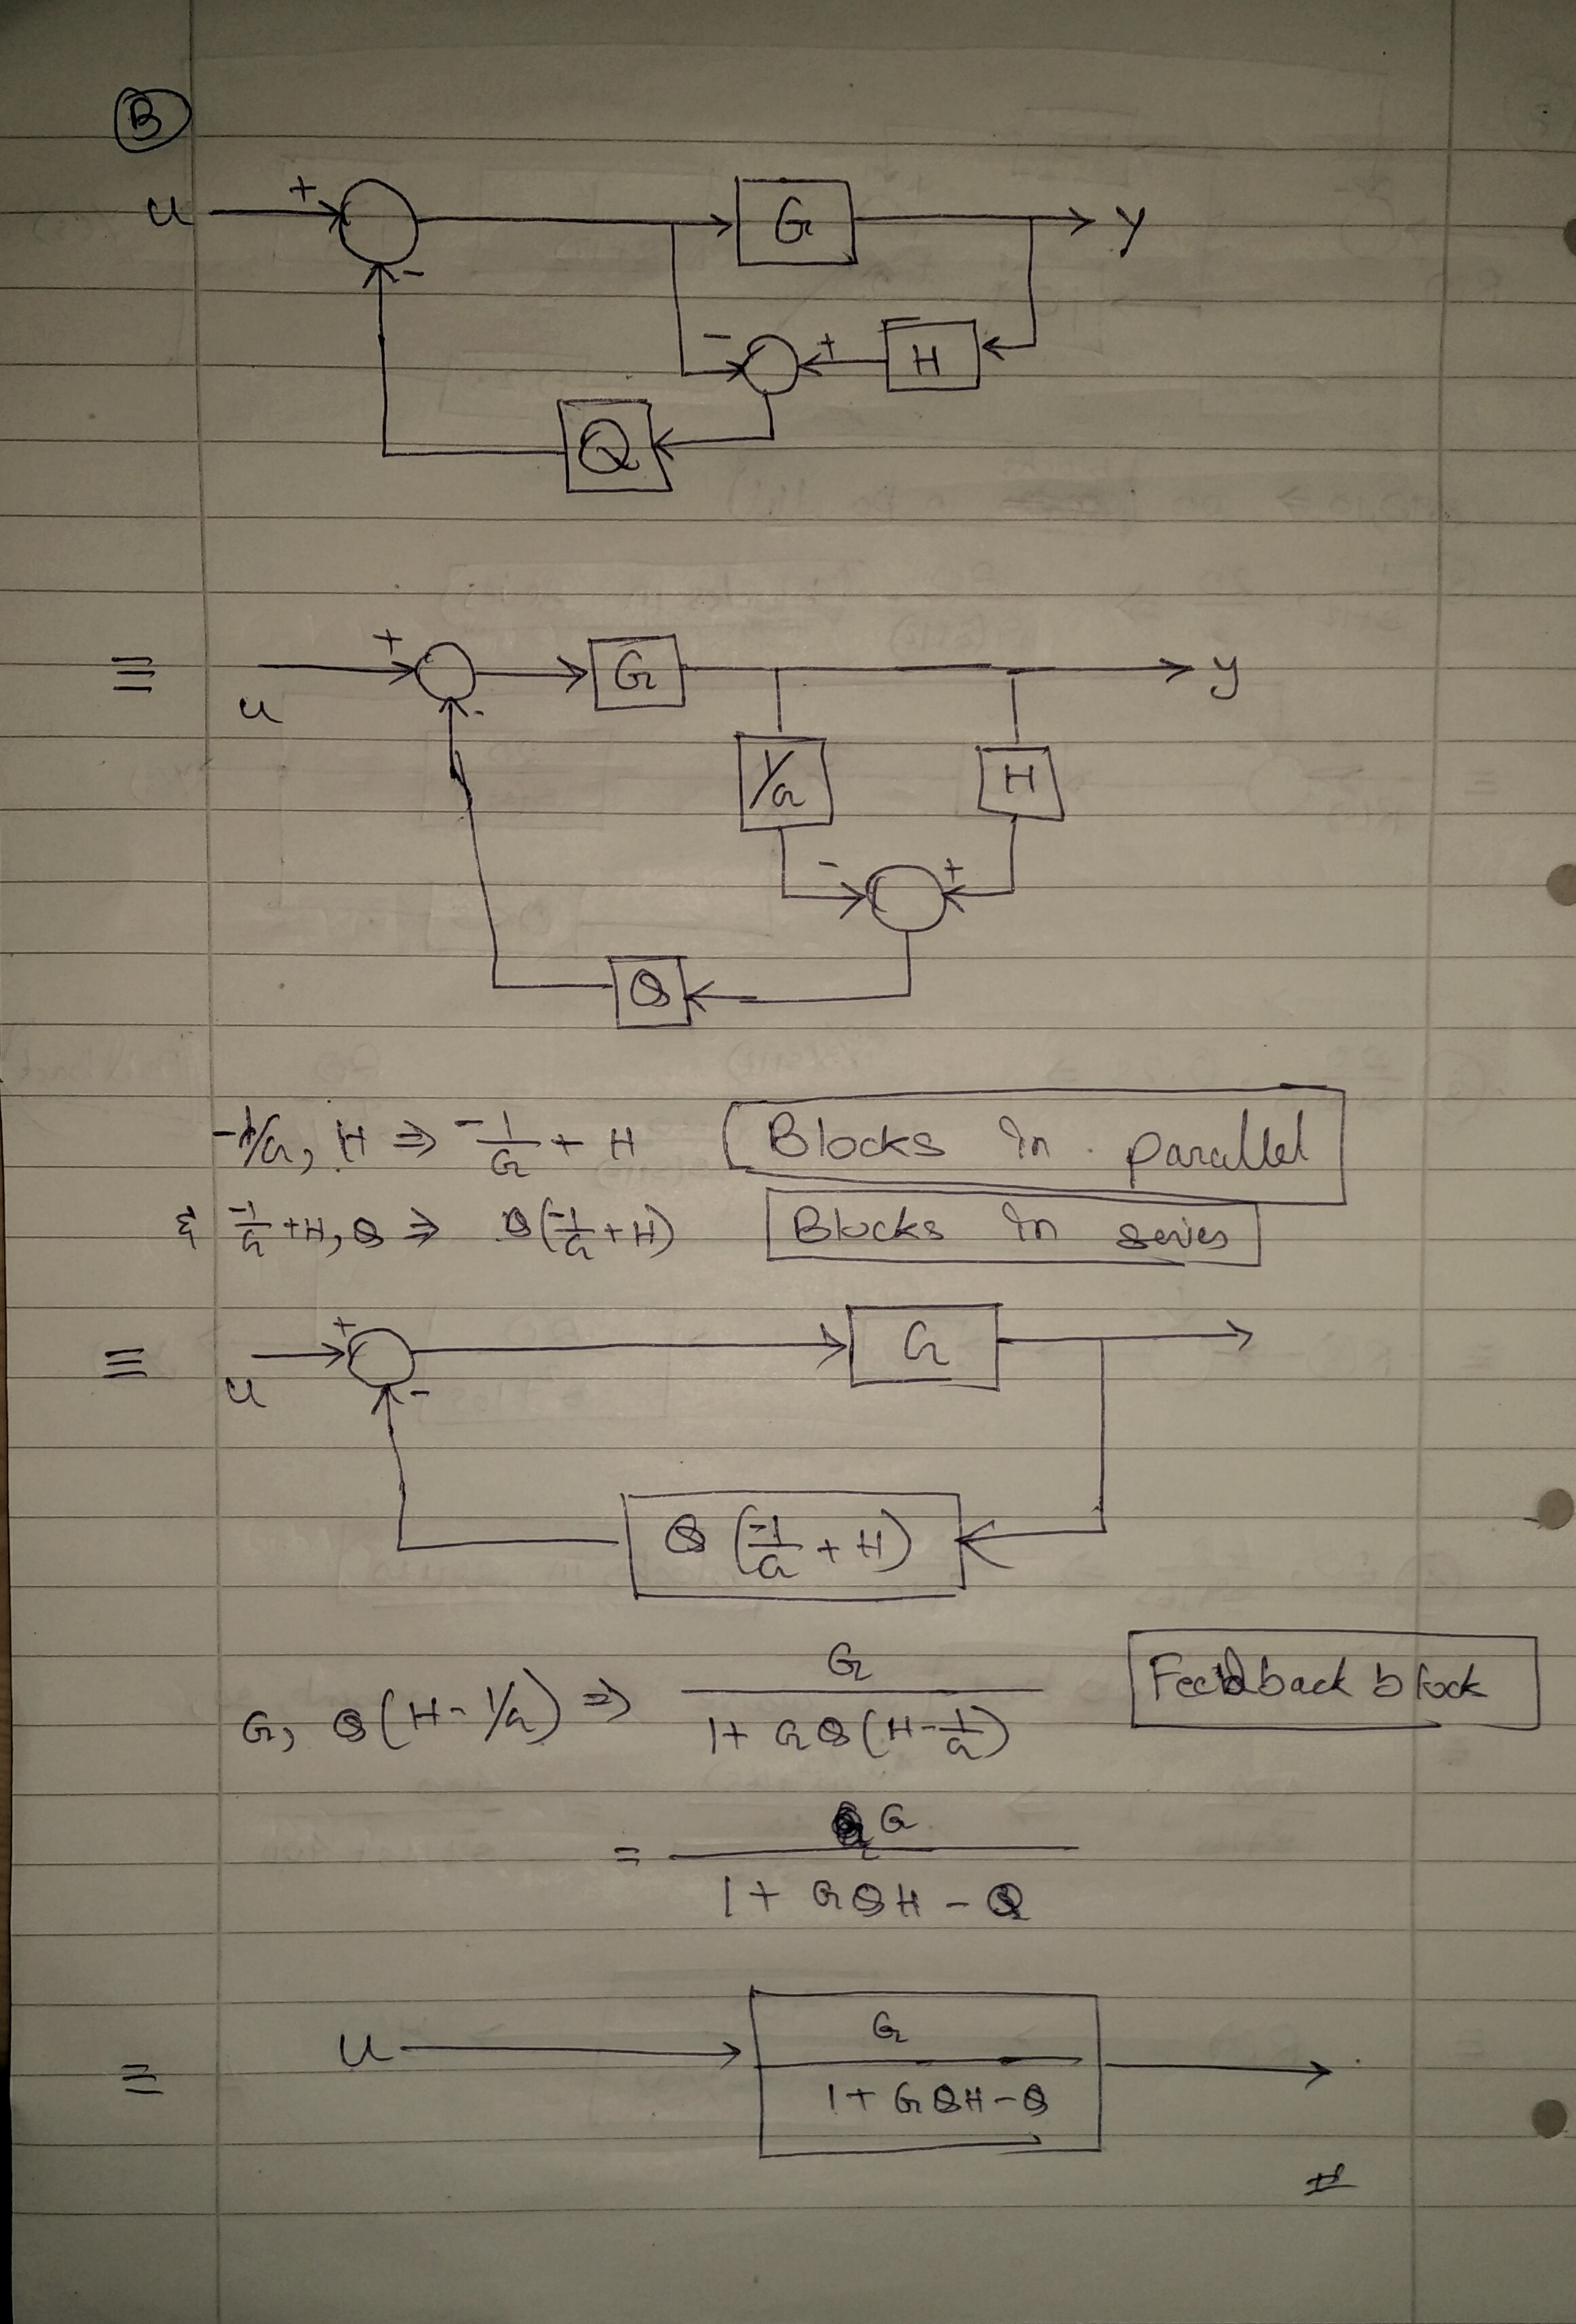 B
u + G y
-
- + H
Q
≡ + G y
u -
1/G H
- +
Q
-1/G, H ⇒ -1/G + H Blocks in parallel
& -1/G + H, Q ⇒ Q(-1/G + H) Blocks in series
≡ + G
u -
Q (-1/G + H)
G, Q(H - 1/G) ⇒ G / 1 + GQ(H - 1/G) Feedback block
= G / 1 + GQH - Q
≡ u G / 1 + GQH - Q